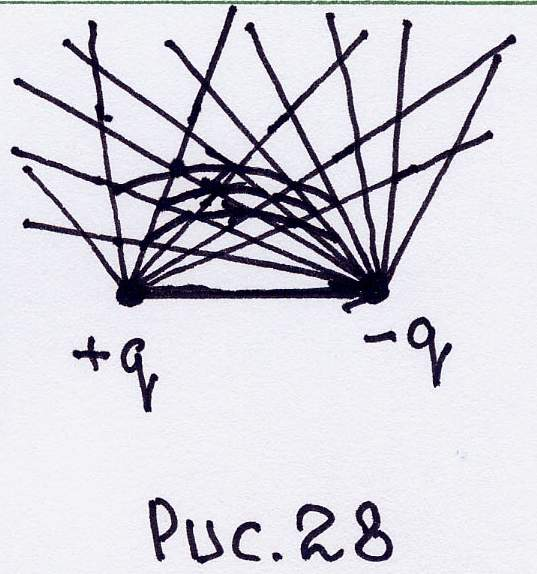 +q
-q
Рис. 28